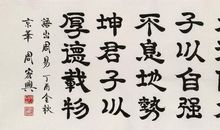 子以自强
不息地勢
坤君子以
厚德載物
語出周易 丁酉金秋
京華 周宏興